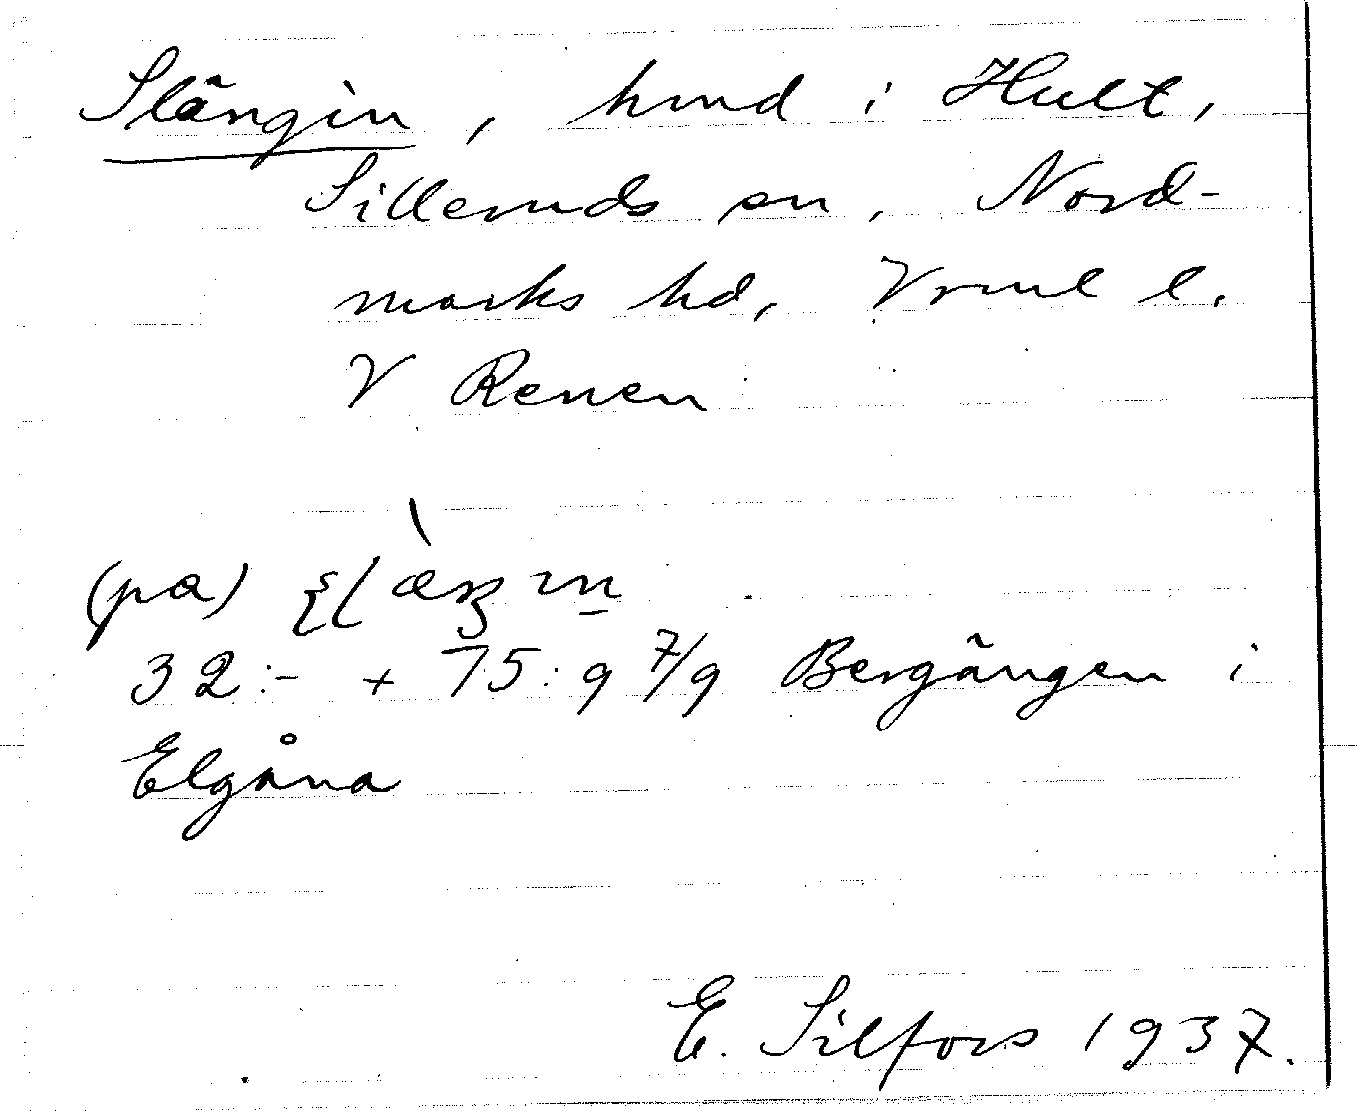 Slängin, hmd i Hult,
Silleruds sn, Nord-
marks hd, Vrml l.
V Renen
(pa)
32:- + 75:9 7/9 Bergängen i
Elgåna
E. Silfors 1937.